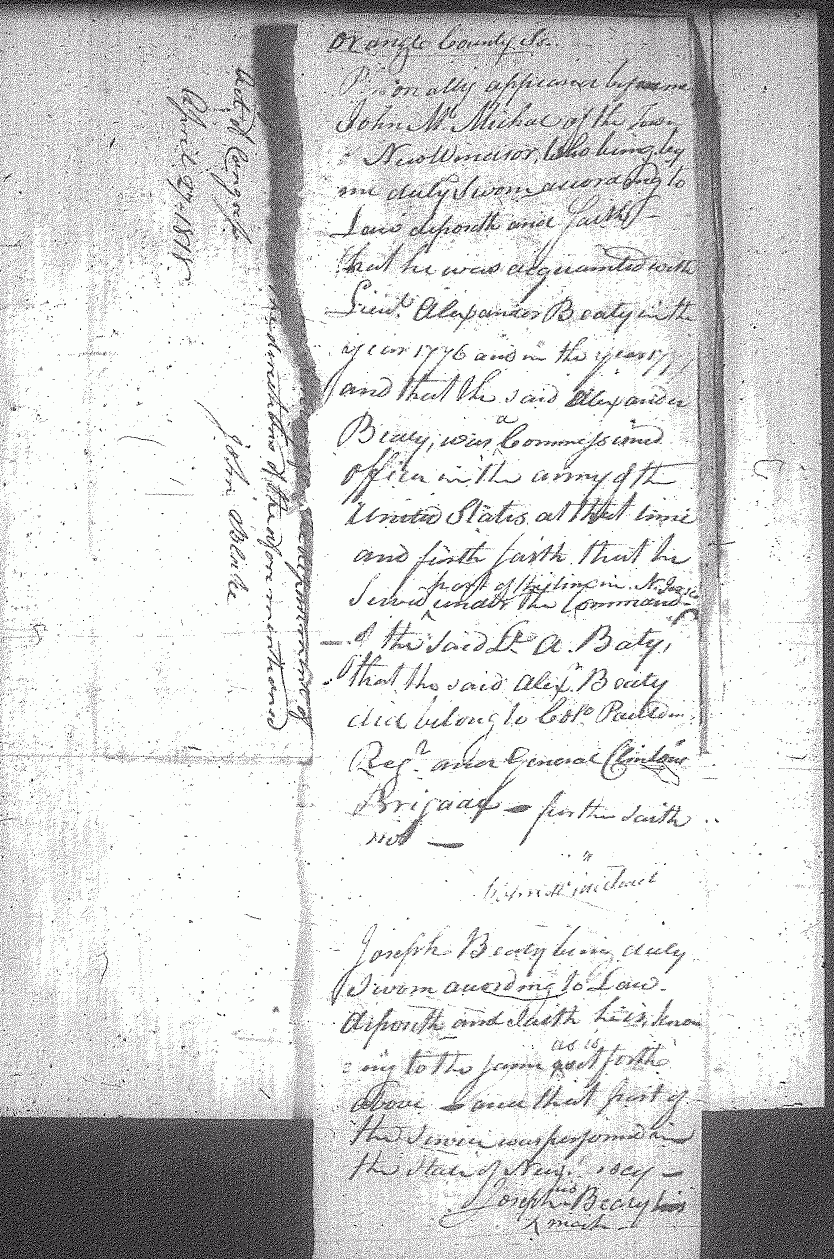 Orange County Ss.
Personally appeared before me
John McMichal of the Town
New Windsor, Who being by
me duly Sworn according to
Law deposeth and Saith
that he was acquainted with
Lieut. Alexander Beaty in the
year 1776 and in the year 1777
and that the said Alexander
Beaty, was a Commissioned
officer in the army of the
United States at that time
and firth saith that he
part of his time in N. Jersey
Served under the Command
of the said Lt. A. Baty,
that the said Alexr. Beaty
did belong to Colo.
Regt. and General Clintons
Brigade — further saith
not —
Joseph Beaty being duly
Sworn according to Law
deposeth and Saith he is know
ing to the same as is set forth
above — and that part of
the Service was performed in
the State of New
Joseph his Beaty
X mark
Act of Congress
April 27, 1818
depositions of the aforementioned
John Blake